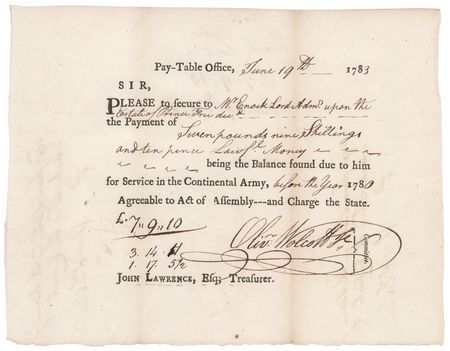 Pay-Table Office, June 19th 1783
SIR,
PLEASE to secure to Mr Enock Lord Admr upon the
Estate of Prince Free decd
the Payment of Seven pounds nine Shillings
and ten pence Lawfl Money
being the Balance found due to him
for Service in the Continental Army, before the Year 1780
Agreeable to Act of Assembly---and Charge the State.
£7 ,, 9 ,, 10
Olivr Wolcott Jr
Committee.
3. 14. 11
1. 17. 5½
JOHN LAWRENCE, Esq; Treasurer.